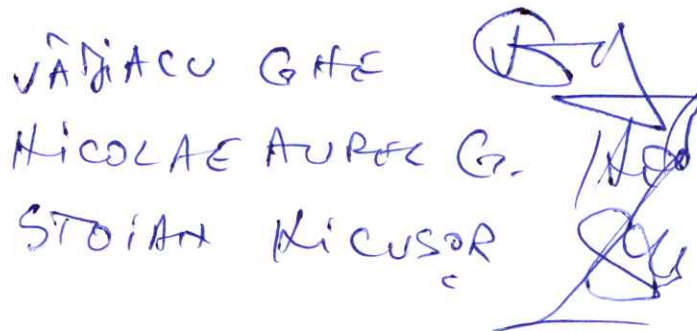 VÂJIACU GHE
NICOLAE AUREL G.
STOIAN NICUȘOR